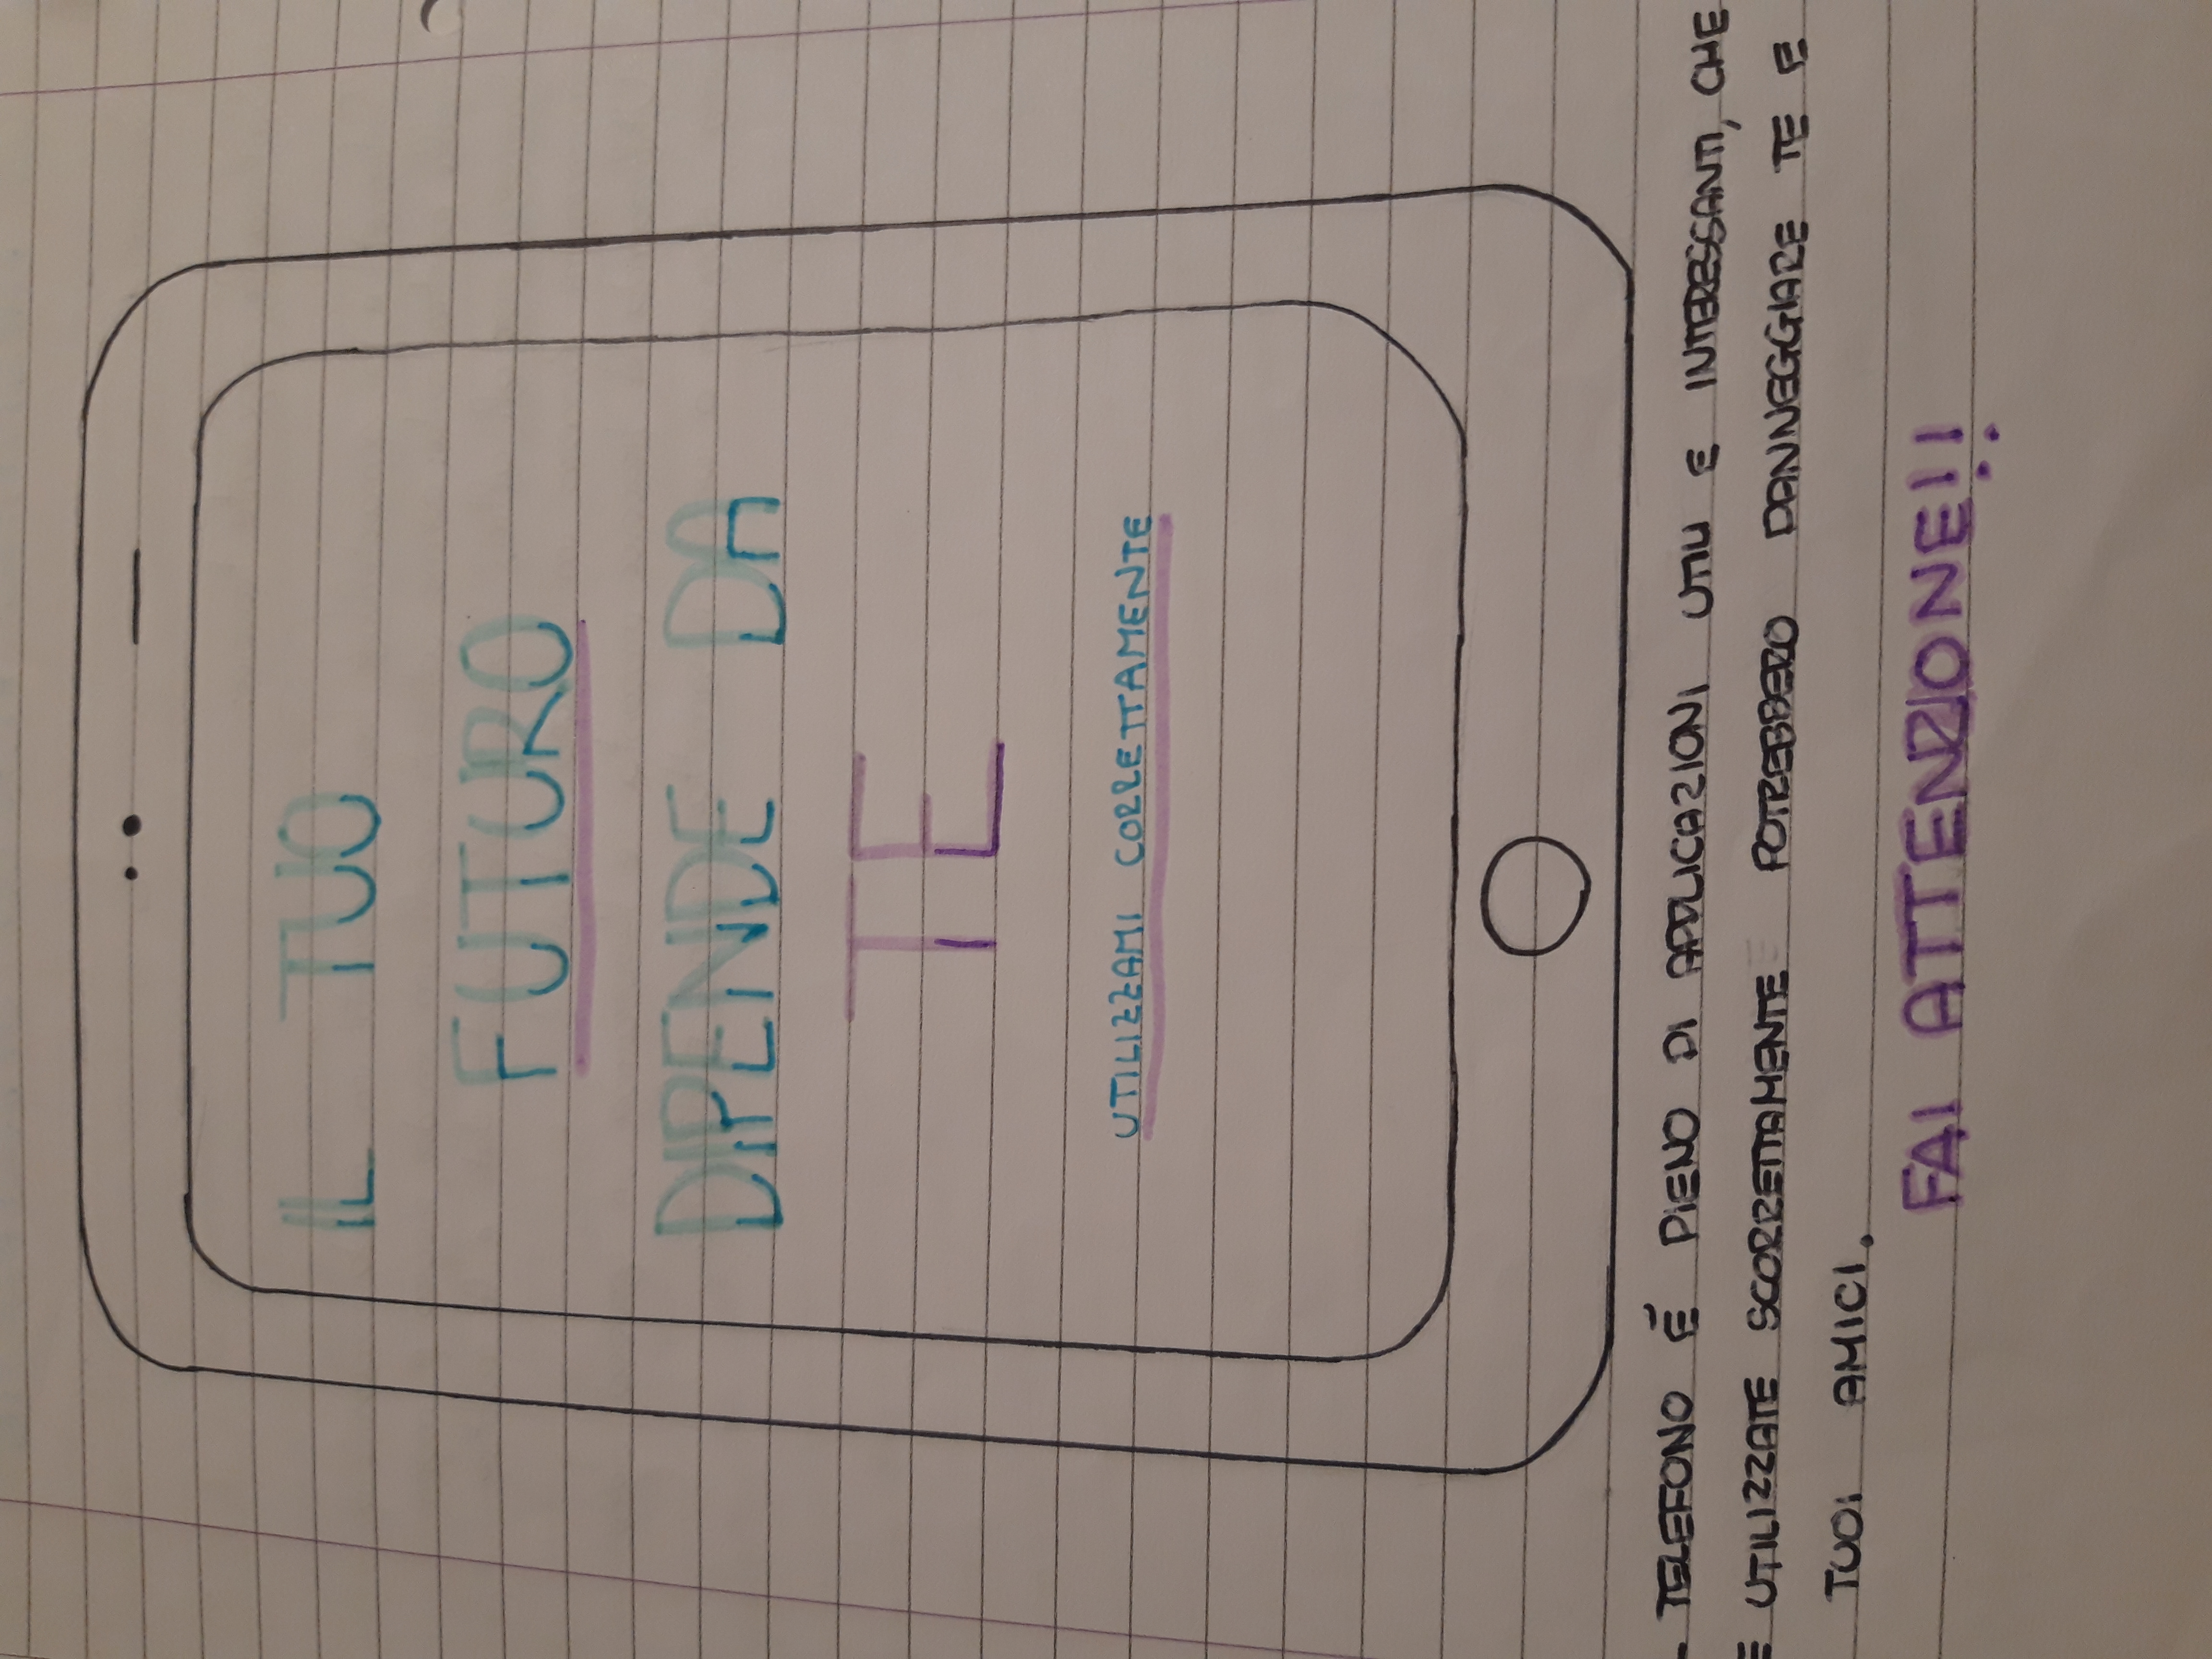 IL TUO
FUTURO
DIPENDE DA
TE
UTILIZZAMI CORRETTAMENTE
TELEFONO É PIENO DI APPLICAZIONI UTILI E INTERESSANTI, CHE
UTILIZZATE SCORRETTAMENTE POTREBBERO DANNEGGIARE TE E
TUOI AMICI.
FAI ATTENZIONE!!